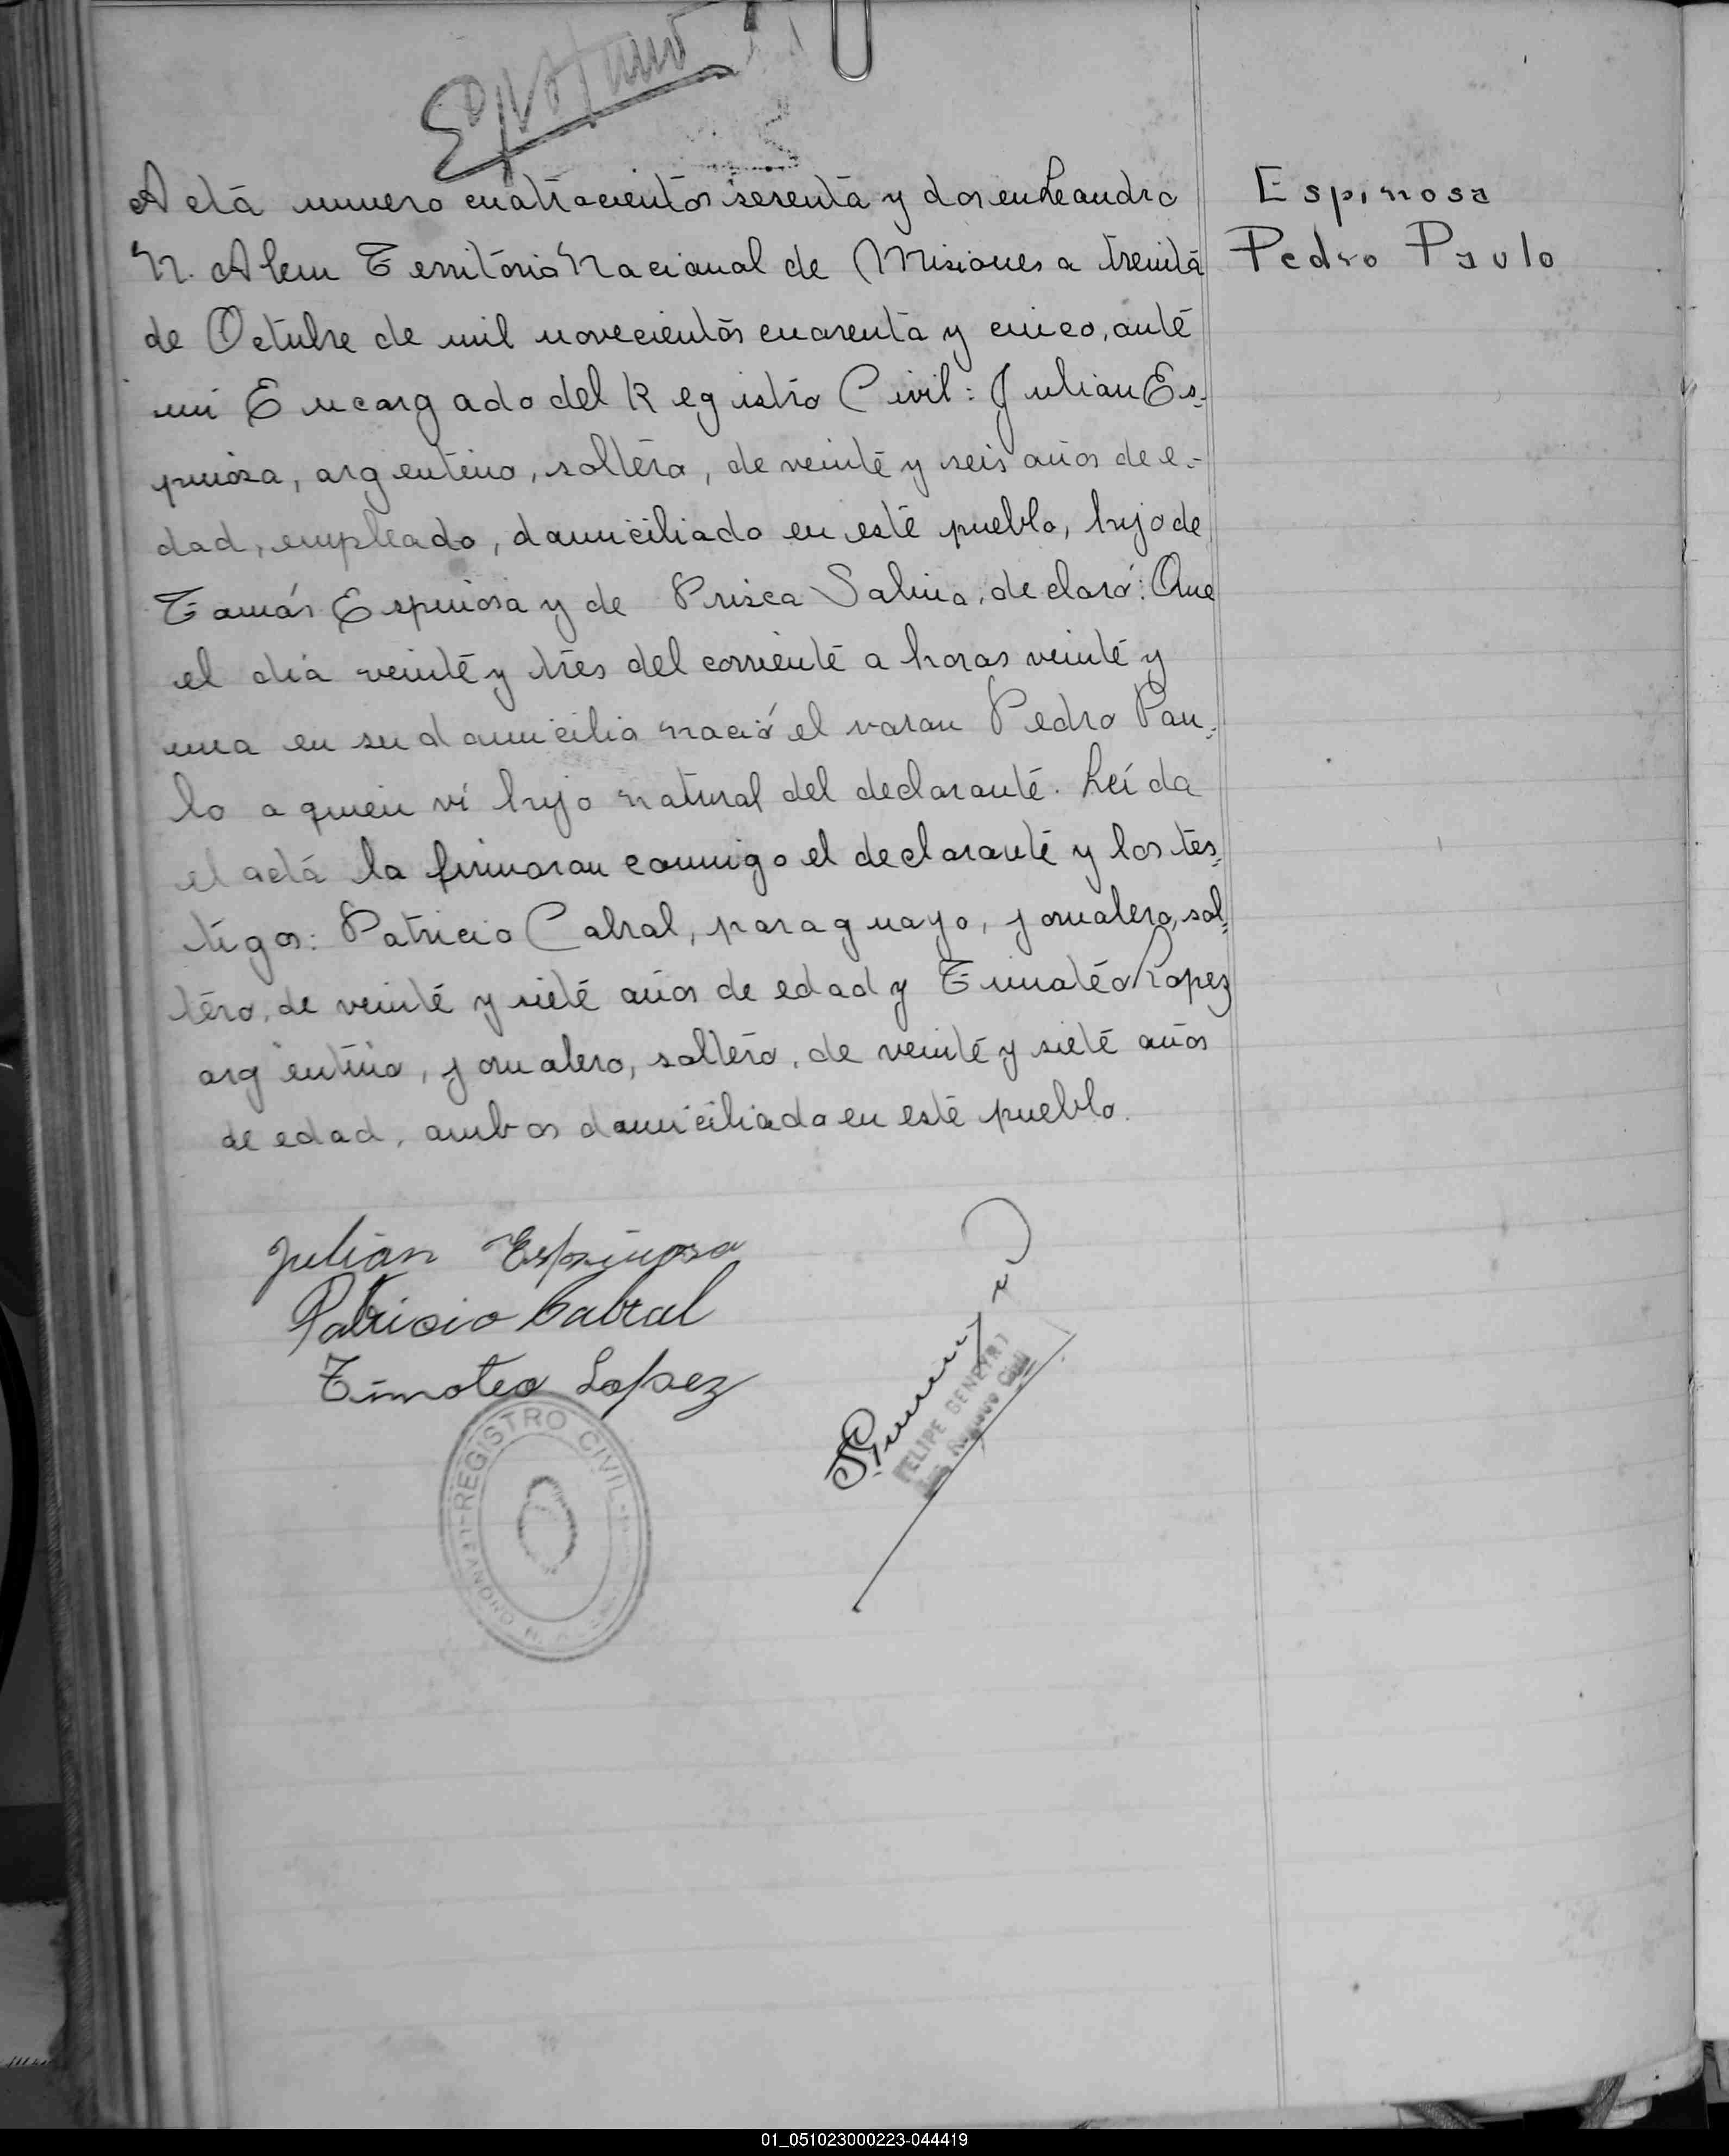 Acta numero cuatrocientos sesenta y dos en Leandro
N. Alem Territorio Nacional de Misiones a treinta
de Octubre de mil novecientos cuarenta y cinco, ante
mi Encargado del Registro Civil: Julian Es-
pinosa, argentino, soltero, de veinte y seis años de e-
dad, empleado, domiciliado en este pueblo, hijo de
Tomás Espinosa y de Prisca Salina, declaró: Que
el día veinte y tres del corriente a horas veinte y
una en su domicilio nació el varon Pedro Pau-
lo a quien ví hijo natural del declarante. Leída
el acta la firmaron conmigo el declarante y los tes-
tigos: Patricio Cabral, paraguayo, jornalero, sol-
tero, de veinte y siete años de edad y Timoteo Lopez
argentino, jornalero, soltero, de veinte y siete años
de edad, ambos domiciliado en este pueblo.
Espinosa
Pedro Paulo
Julian Espinosa
Patricio Cabral
Timoteo Lopez
FELIPE GENEYRO
Registro Civil
REGISTRO CIVIL
LEANDRO N.
01_051023000223-044419